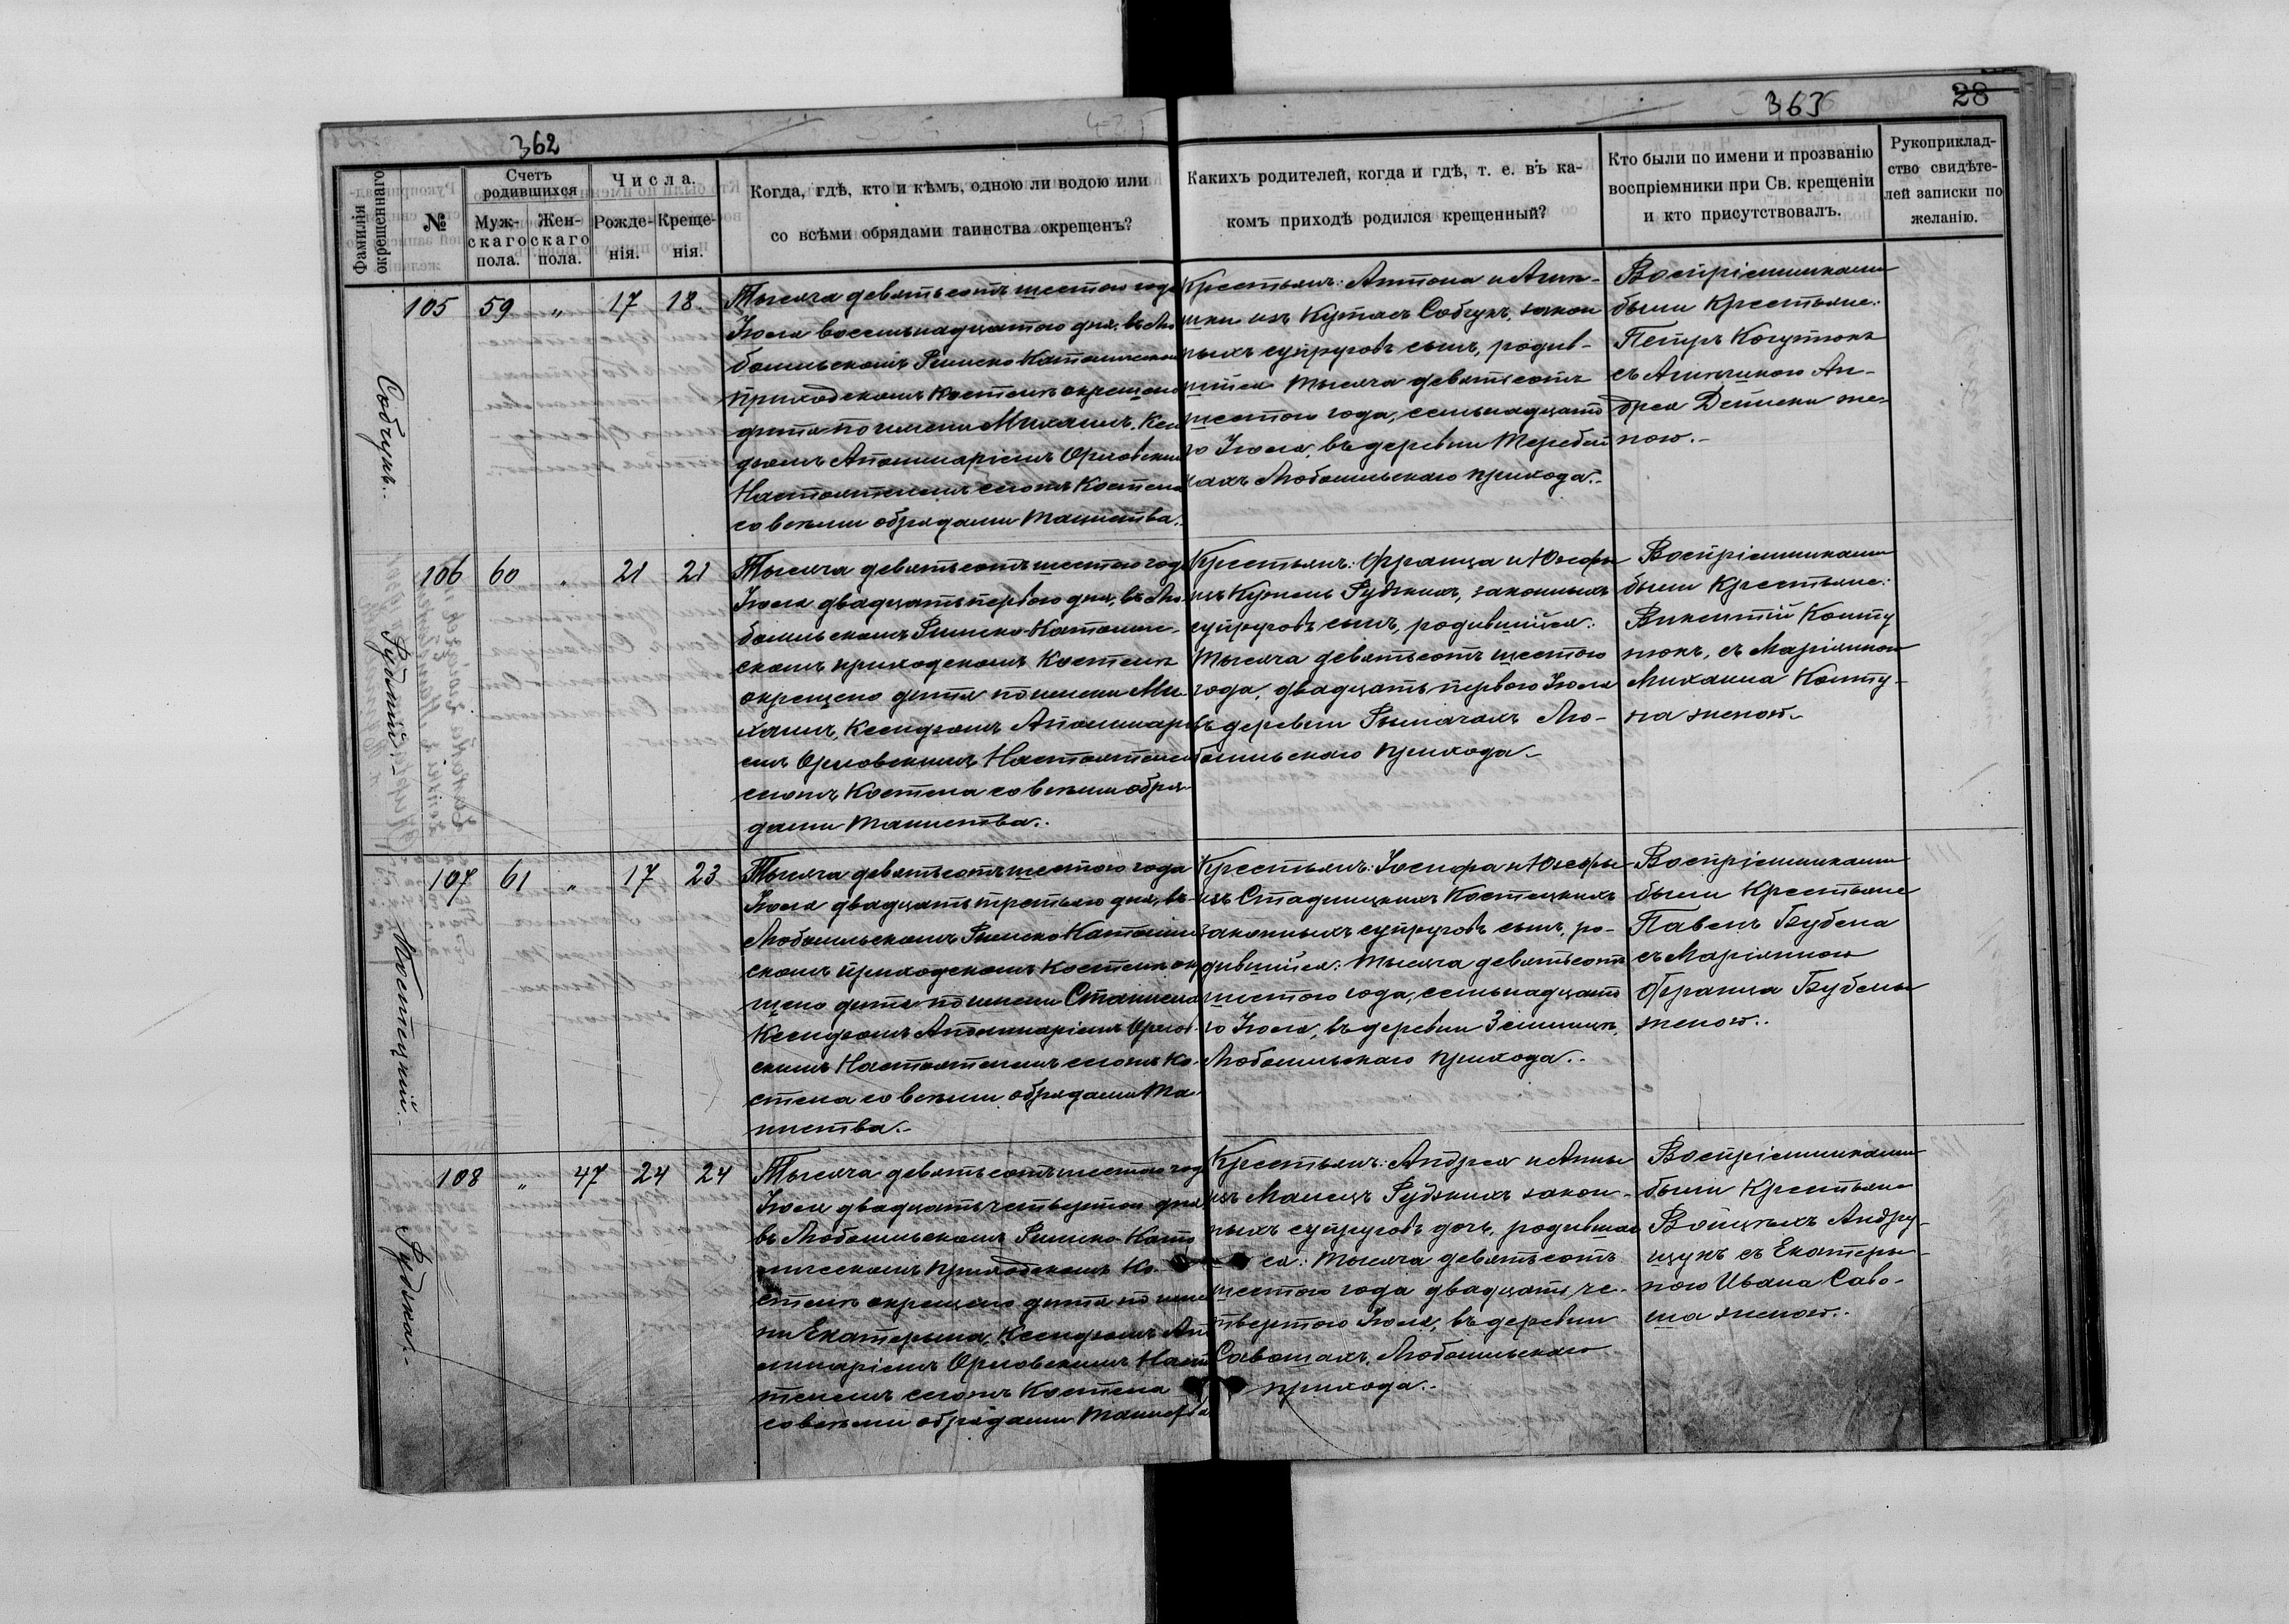 362
363
28
Фамилія окрещеннаго
№
Счетъ родившихся
Муж-
скаго
пола.
Жен-
скаго
пола.
Числа.
Рожде-
нія.
Креще-
нія.
Когда, гдѣ, кто и кѣмъ, одною ли водою или
со всѣми обрядами таинства окрещенъ?
Какихъ родителей, когда и гдѣ, т. е. въ ка-
комъ приходѣ родился крещенный?
Кто были по имени и прозванію
воспріемники при Св. крещеніи
и кто присутствовалъ.
Рукоприклад-
ство свидѣте-
лей записки по
желанію.
Собчукъ.
105 59 " 17 18.
Тысяча девятьсотъ шестого года
Іюля восемьнадцатого дня, въ Лю
бомльскомъ Римско Католическомъ
приходскомъ Костелѣ окрещено
дитя по имени Михаилъ, Ксен
дзомъ Аполинаріемъ Орловскимъ
Настоятелемъ сего Костела
со всѣми обрядами Таинства.
Крестьянъ: Антона и Агнѣ-
шки изъ Собчукъ, закон
ныхъ супруговъ сынъ, родив-
шійся тысяча девятьсотъ
шестого года, семьнадцато
го Іюля, въ деревни Теребей
кахъ Любомльскаго прихода.
Воспріемниками
были Крестьяне:
Петръ Когутюкъ
съ Агнѣшкою Ан-
дрея же-
ною.-
Рудзкій.
106 60 " 21 21
Тысяча девятьсотъ шестого года
Іюля двадцать перваго дня, въ Лю
бомльскомъ Римско-Католиче-
скомъ приходскомъ Костелѣ
окрещено дитя по имени Ми-
хаилъ, Ксендзомъ Аполинарі
емъ Орловскимъ Настоятелемъ
сего Костела со всѣми обря-
дами Таинства.
Крестьянъ: Франца и Юзефы
изъ Рудзкихъ, законныхъ
супруговъ сынъ, родившійся:
тысяча девятьсотъ шестого
года, двадцать перваго Іюля
въ деревни Рымачахъ Лю-
бомльскаго прихода.-
Воспріемниками
были Крестьяне:
Викентій Ковту
нюкъ, съ Маріянною
Михаила Ковту-
на женою.-
Костецкій.
107 61 " 17 23
Тысяча девятьсотъ шестого года
Іюля двадцать третьяго дня, въ
Любомльскомъ Римско Католиче
скомъ приходскомъ Костелѣ окре
щено дитя по имени Станислав
Ксендзомъ Аполинаріемъ Орлов
скимъ Настоятелемъ сего Ко-
стела со всѣми обрядами Та-
инства.-
Крестьянъ: Іосифа и Юзефы
изъ Стадницкихъ Костецкихъ
законныхъ супруговъ сынъ, ро-
дившійся: тысяча девятьсотъ
шестого года, семьнадцато
го Іюля, въ деревни Землицѣ,
Любомльскаго прихода..
Воспріемниками
были Крестьяне
Павелъ Бубела
съ Маріянною
Франца Бубелы
женою..
Рудзкая.-
108 " 47 24 24
Тысяча девятьсотъ шестого года
Іюля двадцать четвертого дня
въ Любомльскомъ Римско-Като
лическомъ приходскомъ Ко-
стелѣ окрещено дитя по име
ни Екатерына, Ксендзомъ Апо
линаріемъ Орловскимъ Настоя
телемъ сего Костела
со всѣми обрядами Таинства
Крестьянъ: Андрея и Анны
изъ Малецъ Рудзкихъ закон-
ныхъ супруговъ дочь, родившая
ся: тысяча девятьсотъ
шестого года двадцать че-
твертого Іюля, въ деревни
Савошахъ, Любомльскаго
прихода.-
Воспріемниками
были Крестьяне
Войцѣхъ Андру-
щукъ съ Екатеры-
ною Ивана Саво-
ша женою..